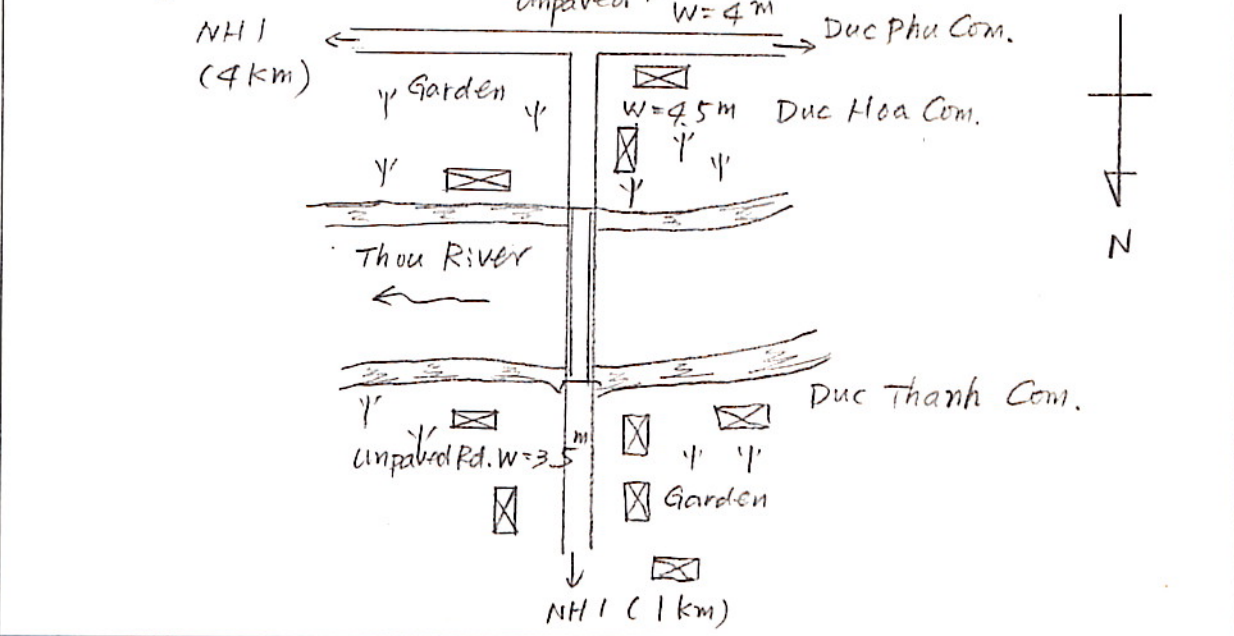 Unpaved W=4m
NH1
(4km)
Duc Phu Com.
Garden
W=4.5m
Duc Hoa Com.
N
Thou River
Duc Thanh Com.
Unpaved Rd. W=3.5m
Garden
NH1 (1km)